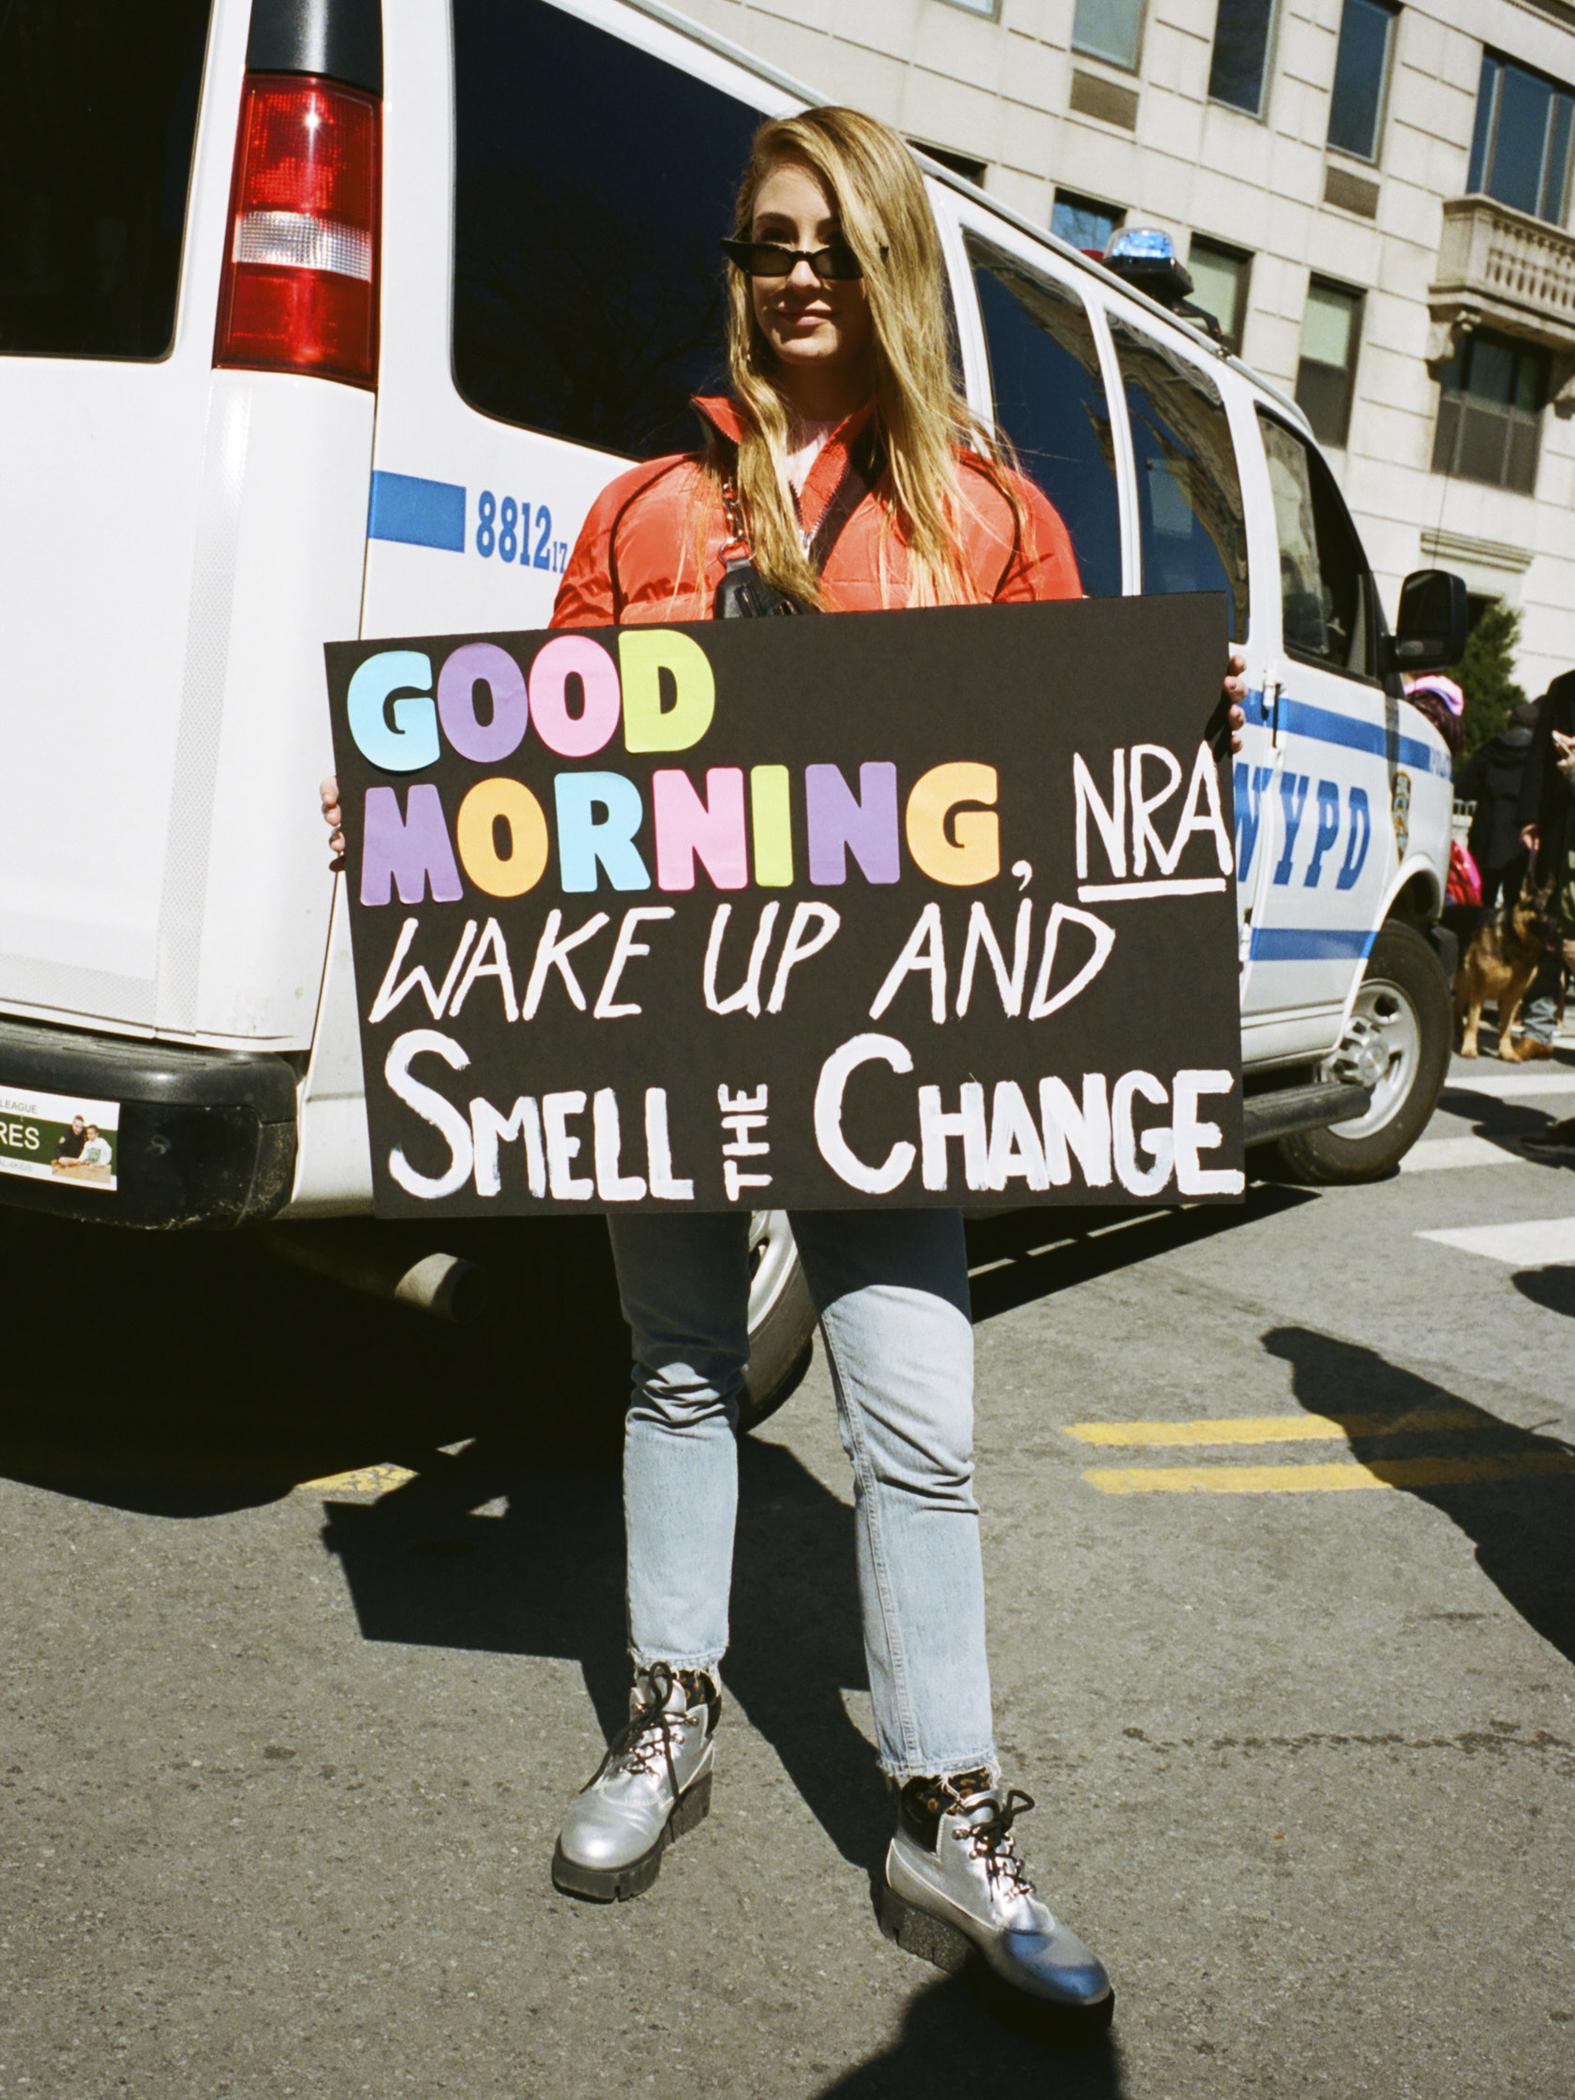 8812 17
GOOD
MORNING, NRA
WAKE UP AND
SMELL THE CHANGE
NYPD
LEAGUE
RES